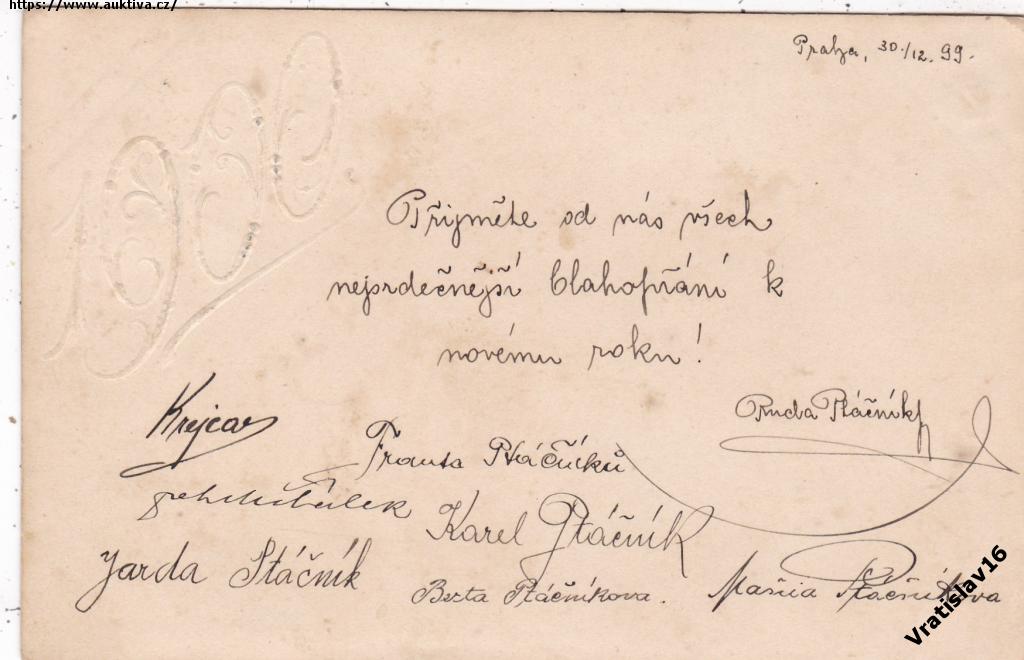 https://www.auktiva.cz/
Praha, 30./12. 99.
1900
Přijměte od nás všech
nejsrdečnější blahopřání k
novému roku!
Krejcar
Ruda Ptáčník
Franta Ptáčníků
Karel Ptáčník
Jarda Ptáčník
Berta Ptáčníkova.
Mařia Ptáčníkova
Vratislav16